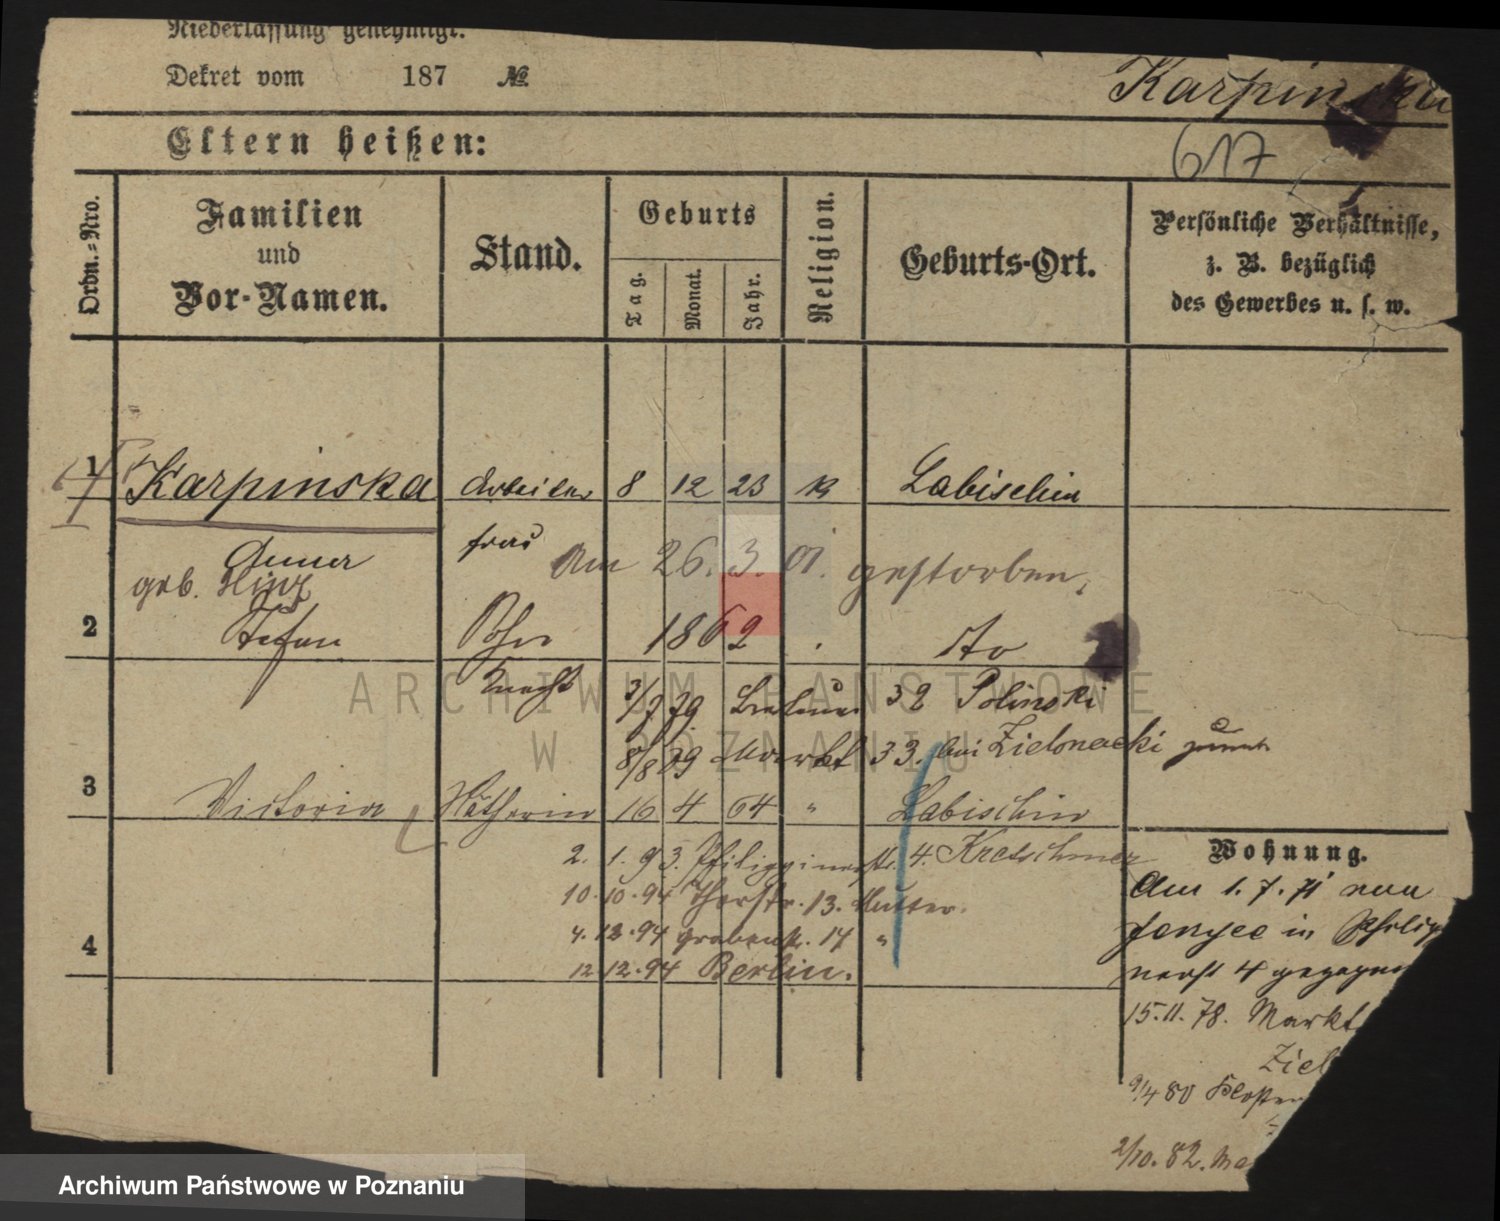 Niederlassung genehmigt.
Dekret vom 187 №
Karpinska
617
Eltern heißen:
Ordn.-Nro.
Familien
und
Vor-Namen.
Stand.
Geburts
Tag.
Monat.
Jahr.
Religion.
Geburts-Ort.
Persönliche Verhältnisse,
z. B. bezüglich
des Gewerbes u. s. w.
1 Karpinska Arbeiter 8 12 23 k Labischin
frau
Am 26. 3. 01. gestorben.
geb.
2 Stefan Sohn 1862 do
Knecht 3/7 79. 32 Polinski
8/8 79 Markt 33. bei Zielonacki
3 Victoria 16 4 64 " Labischin
2. 1. 93. 4. Kretschmer
10.10.94 Thorstr. 13. Mutter.
4.12.94 Grabenstr. 14 "
4
12.12.94 Berlin.
Wohnung.
Am 1. 7. 71 von
in
4
15.11.78. Markt
Ziel
9/4 80 Kloster
2/10.82.
ARCHIWUM PAŃSTWOWE
W POZNANIU
Archiwum Państwowe w Poznaniu